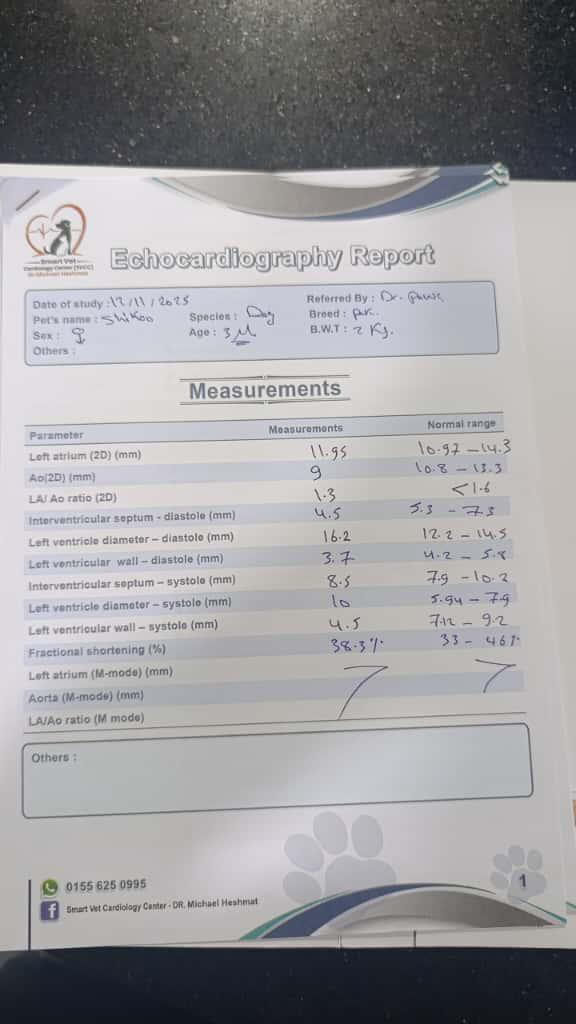 Smart Vet
Cardiology Center (SVCC)
Dr.Michael Heshmat
Echocardiography Report
Date of study : 12/11/2025 Referred By : Dr.
Pet's name : Shikoo Species : Dog Breed :
Sex : ♀ Age : 3 M B.W.T : 2 Kg.
Others :
Measurements
Parameter Measurements Normal range
Left atrium (2D) (mm) 11.95 10.97 - 14.3
Ao(2D) (mm) 9 10.8 - 13.3
LA/ Ao ratio (2D) 1.3 <1.6
Interventricular septum - diastole (mm) 4.5 5.3 - 7.3
Left ventricle diameter – diastole (mm) 16.2 12.2 - 14.5
Left ventricular wall – diastole (mm) 3.7 4.2 - 5.8
Interventricular septum – systole (mm) 8.5 7.9 - 10.2
Left ventricle diameter – systole (mm) 10 5.94 - 7.9
Left ventricular wall – systole (mm) 4.5 7.12 - 9.2
Fractional shortening (%) 38.3% 33 - 46%
Left atrium (M-mode) (mm)
Aorta (M-mode) (mm)
LA/Ao ratio (M mode)
Others :
0155 625 0995
Smart Vet Cardiology Center - DR. Michael Heshmat
1